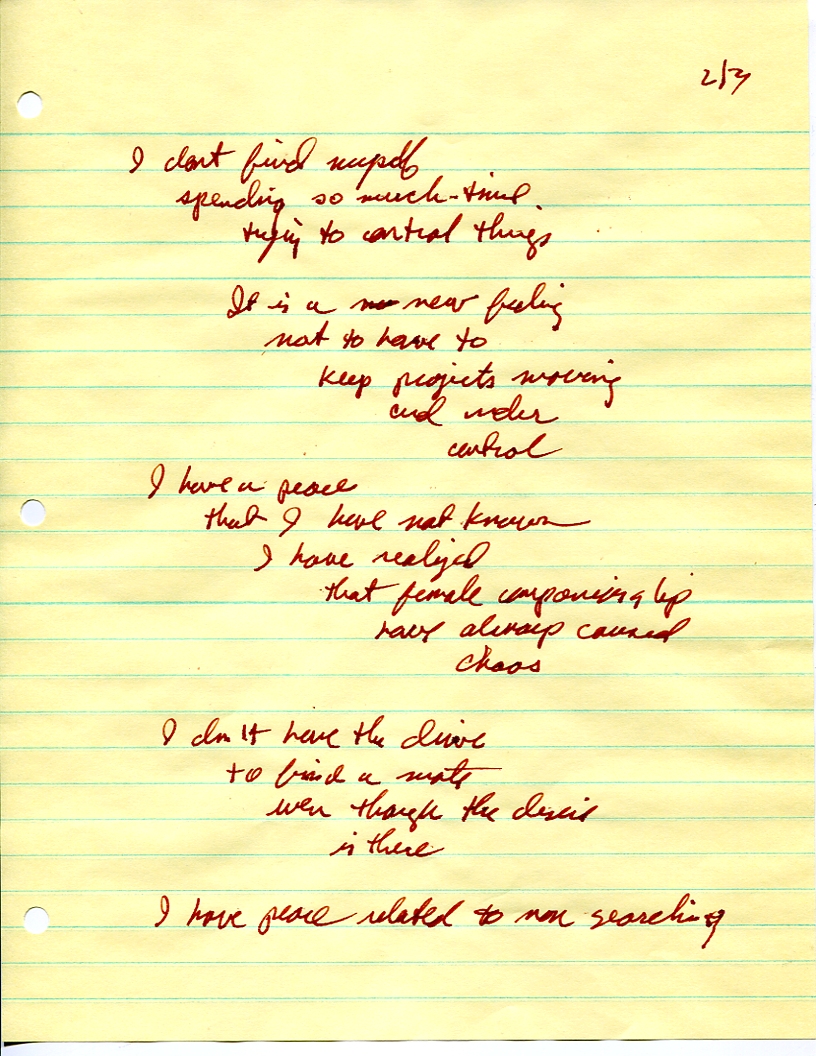 2/3
I dont find myself
spending so much time
trying to control things
It is a new feeling
not to have to
keep projects moving
and under
control
I have a peace
that I have not known
I have realized
that female companionship
have always caused
chaos
I don't have the drive
to find a mate
even though the desire
is there
I have peace related to non searching